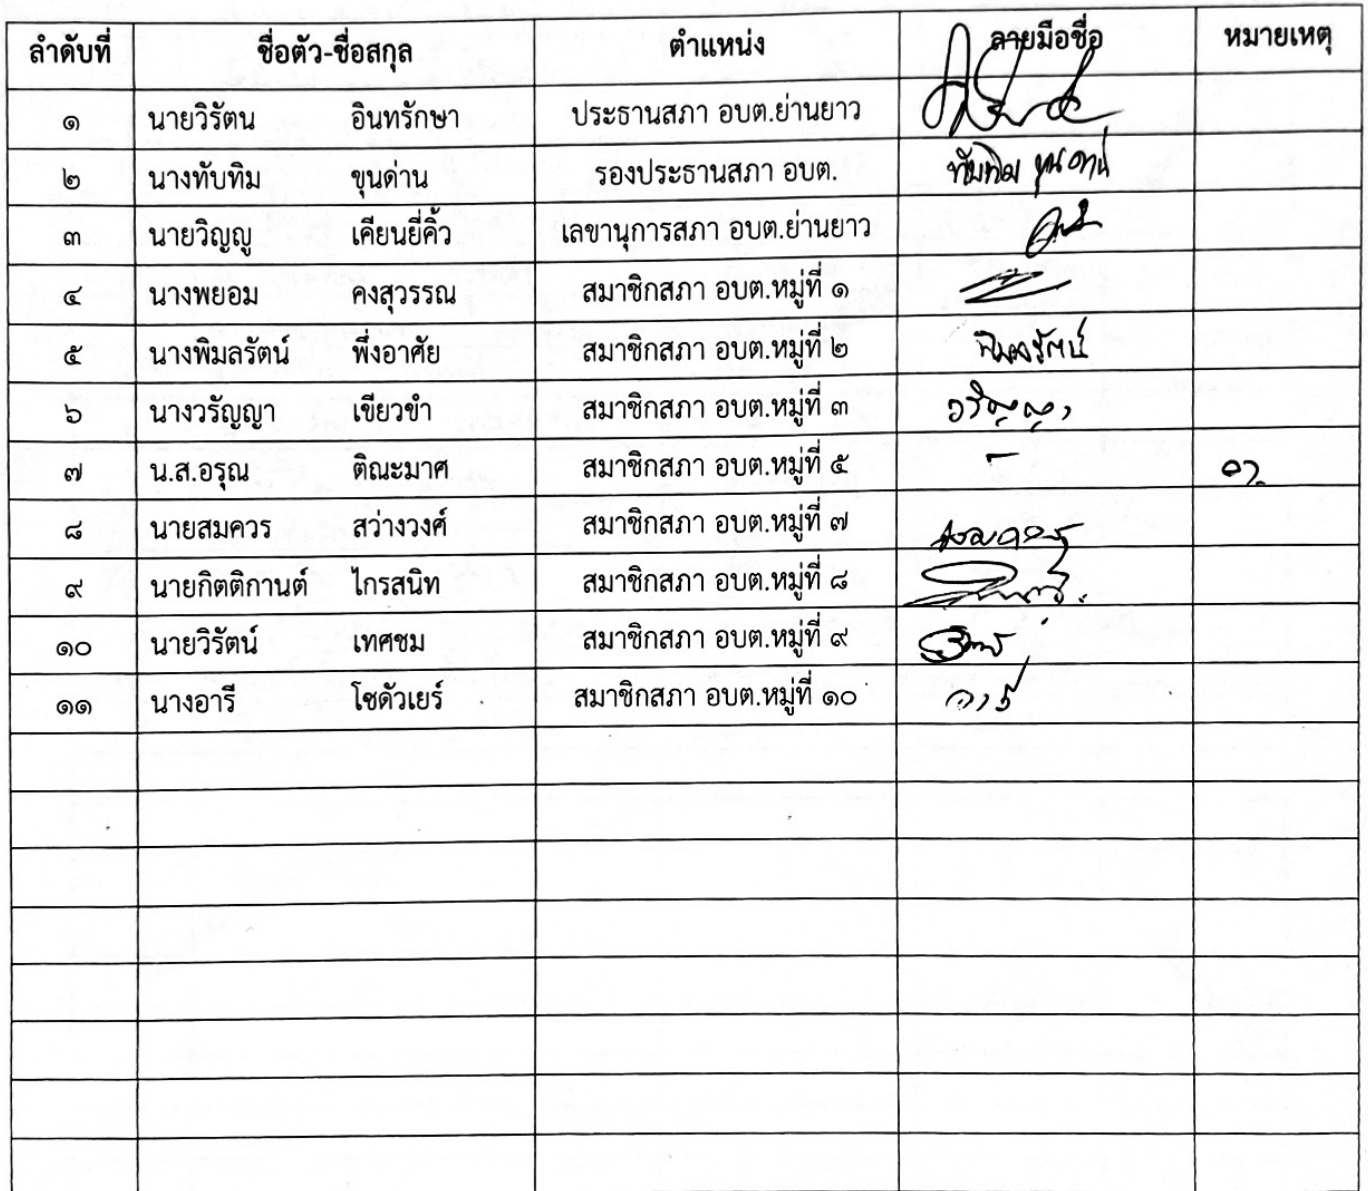 ลำดับที่ ชื่อตัว-ชื่อสกุล ตำแหน่ง ลายมือชื่อ หมายเหตุ
๑ นายวิรัตน อินทรักษา ประธานสภา อบต.ย่านยาว
๒ นางทับทิม ขุนด่าน รองประธานสภา อบต. ทับทิม ขุนด่าน
๓ นายวิญญู เคียนยี่คิ้ว เลขานุการสภา อบต.ย่านยาว
๔ นางพยอม คงสุวรรณ สมาชิกสภา อบต.หมู่ที่ ๑
๕ นางพิมลรัตน์ พึ่งอาศัย สมาชิกสภา อบต.หมู่ที่ ๒ พิมลรัตน์
๖ นางวรัญญา เขียวขำ สมาชิกสภา อบต.หมู่ที่ ๓ วรัญญา
๗ น.ส.อรุณ ติณะมาศ สมาชิกสภา อบต.หมู่ที่ ๕ -
๘ นายสมควร สว่างวงศ์ สมาชิกสภา อบต.หมู่ที่ ๗ สมควร
๙ นายกิตติกานต์ ไกรสนิท สมาชิกสภา อบต.หมู่ที่ ๘
๑๐ นายวิรัตน์ เทศชม สมาชิกสภา อบต.หมู่ที่ ๙
๑๑ นางอารี โซดัวเยร์ สมาชิกสภา อบต.หมู่ที่ ๑๐ อารี